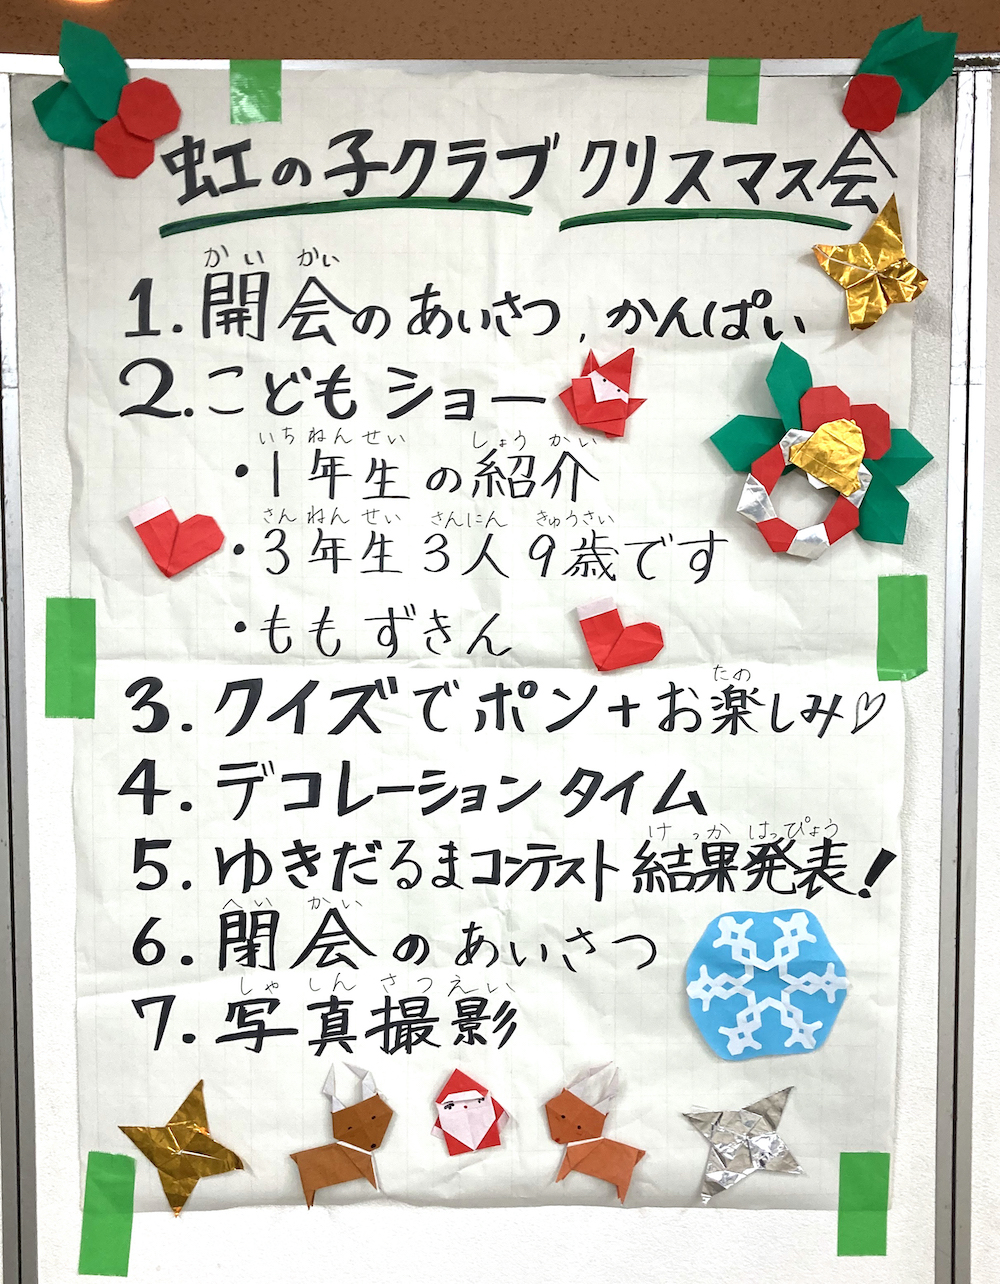 虹の子クラブ クリスマス会
かい かい
1. 開会のあいさつ, かんぱい
2. こどもショー
いちねんせい しょうかい
・1年生の紹介
さんねんせい さんにん きゅうさい
・3年生3人 9歳です
・ももずきん
たの
3. クイズでポン+お楽しみ♡
4. デコレーションタイム
けっか はっぴょう
5. ゆきだるまコンテスト 結果発表!
へい かい
6. 閉会のあいさつ
しゃしんさつえい
7. 写真撮影